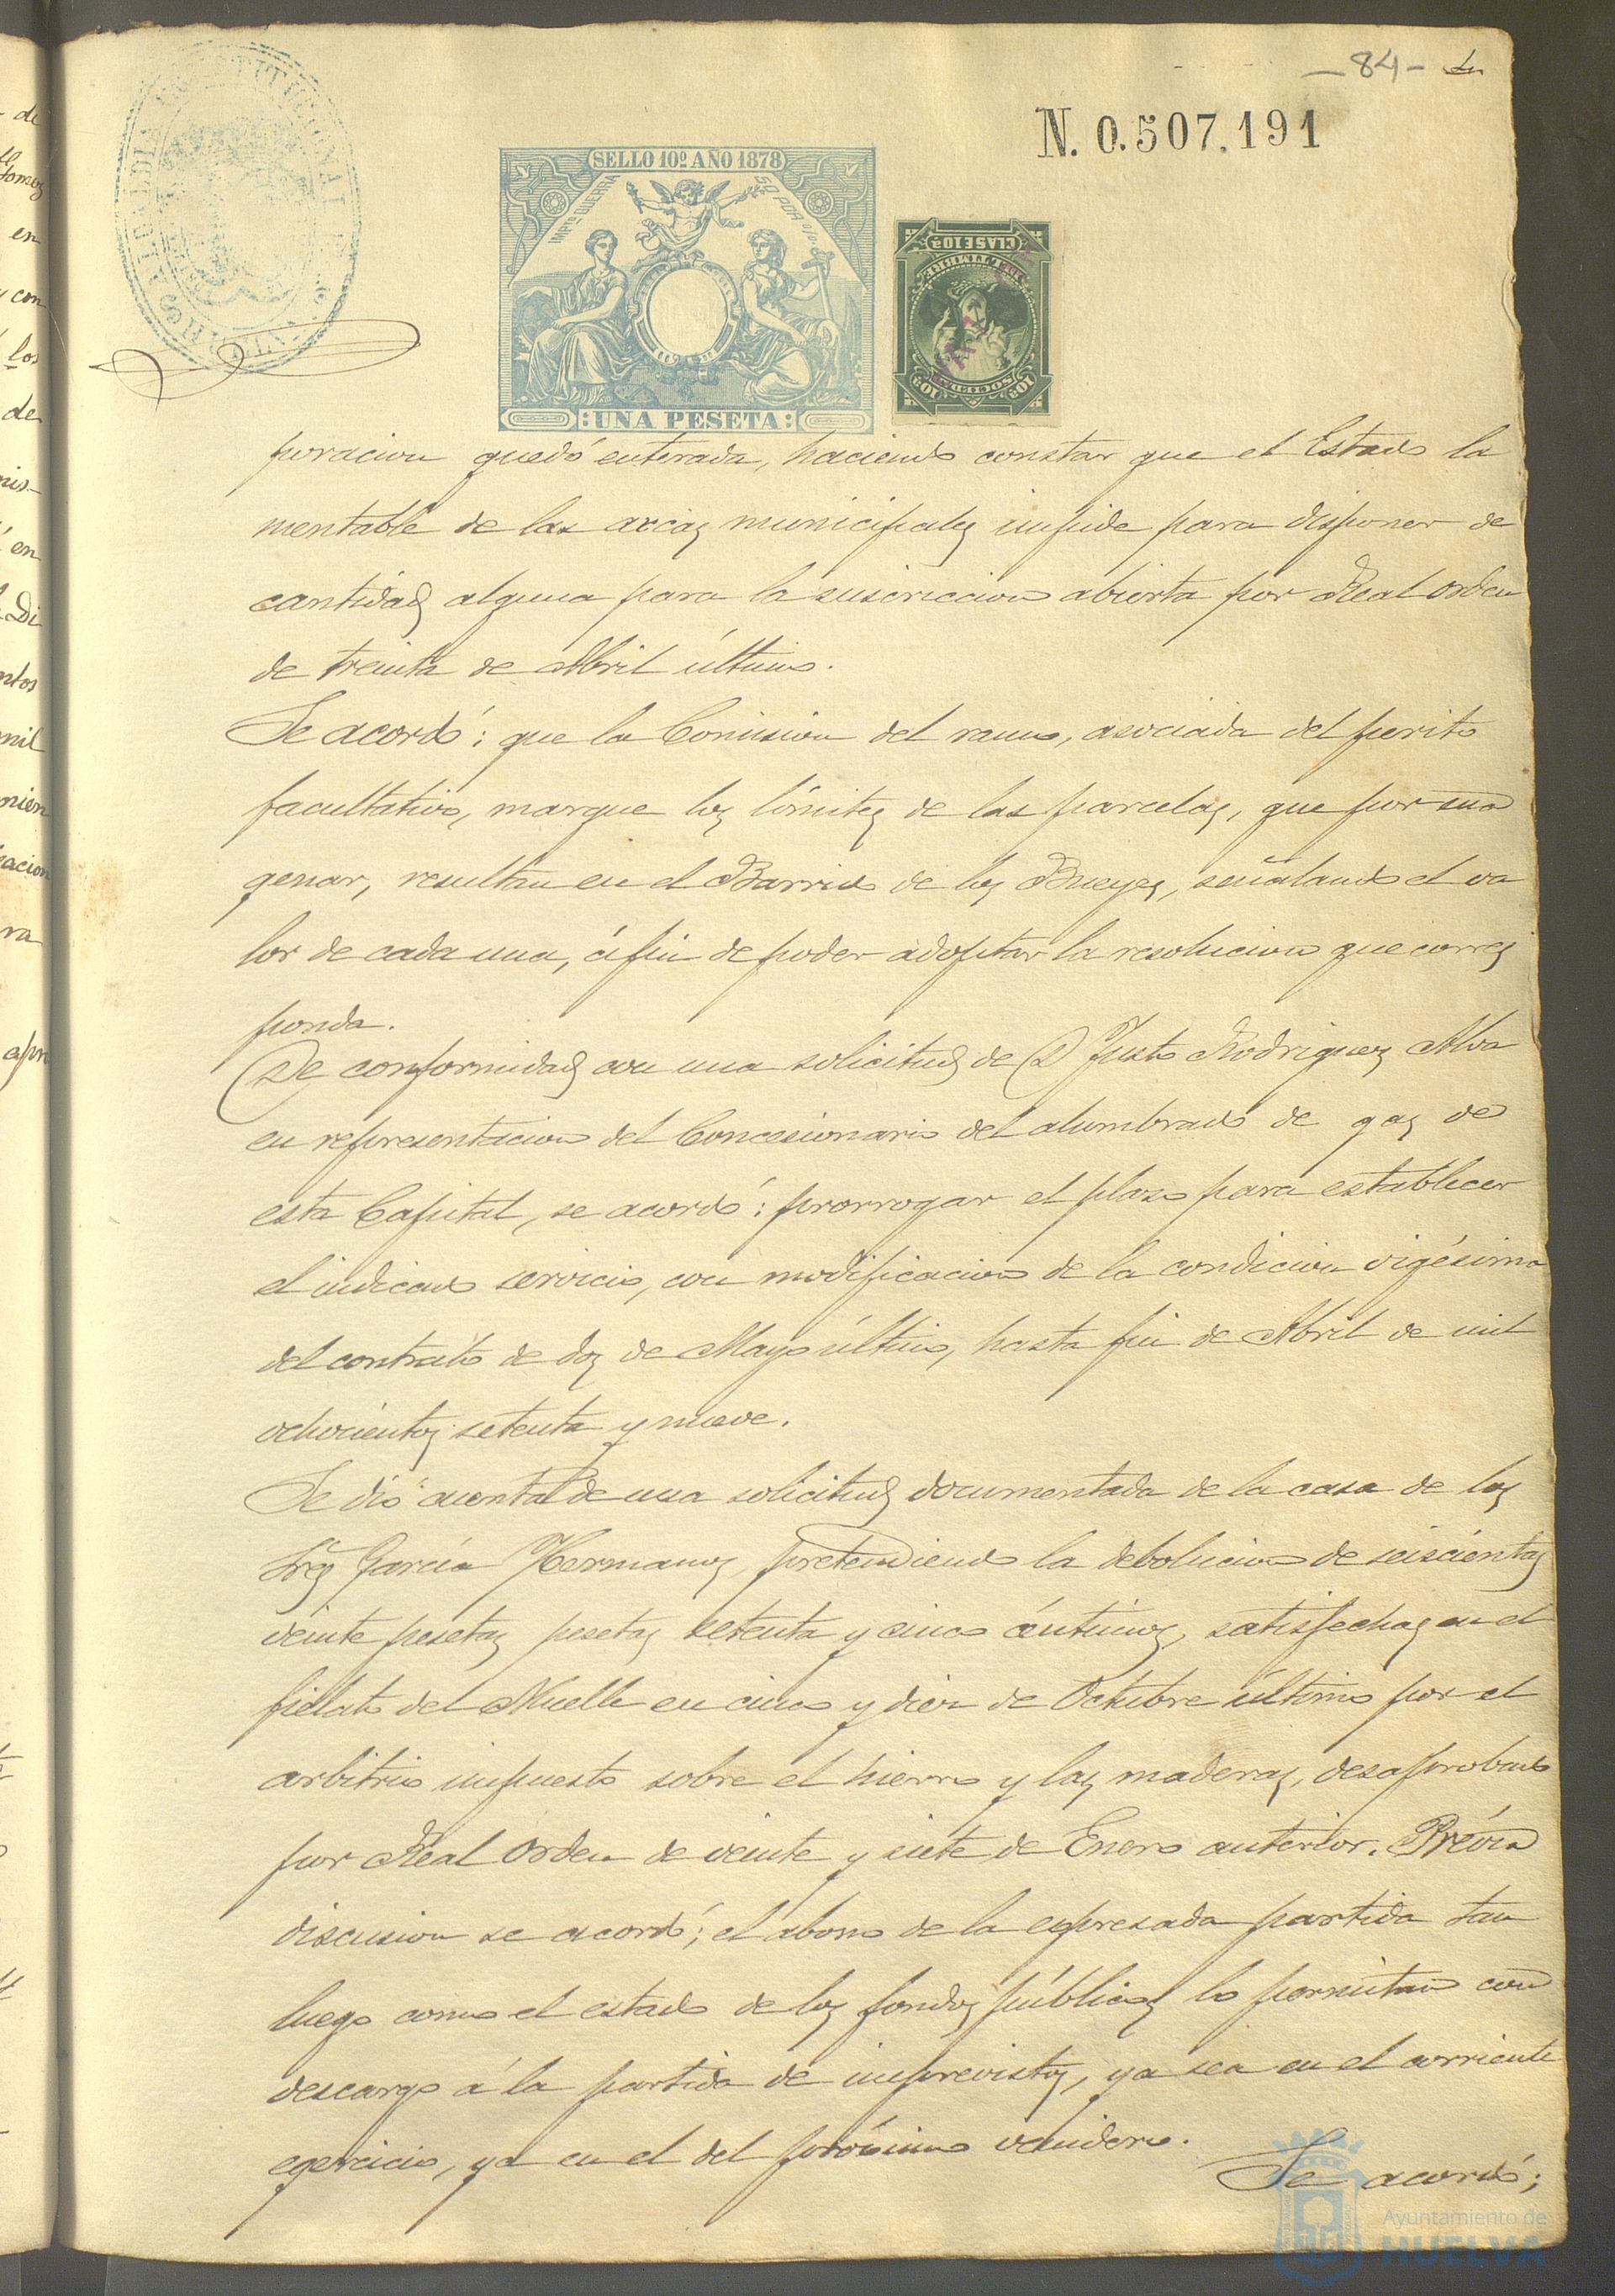 - 84 -
N. 0.507.191
SELLO 10º AÑO 1878
IMPto GUERRA
50 POR
CLASE 10ª
TIMBRE
UNA PESETA
poracion quedó enterada, haciendo constar que el Estado la
mentable de las arcas municipales impide para disponer de
cantidad alguna para la suscriccion abierta por Real orden
de treinta de Abril último.
Se acordó: que la Comision del ramo, asociada del perito
facultativo, marque los límites de las parcelas, que por ena
genar, resultan en el Barrio de los Bueyes, señalando el va
lor de cada una, á fin de poder adoptar la resolucion que corres
ponda.
De conformidad con una solicitud de D Justo Rodriguez Alva
en representacion del Concesionario del alumbrado de gas de
esta Capital, se acordó: prorrogar el plazo para establecer
el indicado servicio, con modificacion de la condicion vigésima
del contrato de dos de Mayo último, hasta fin de Abril de mil
ochocientos setenta y nueve.
Se dió cuenta de una solicitud documentada de la casa de los
Sres García Hermanos, pretendiendo la debolucion de seiscientas
veinte pesetas pesetas setenta y cinco céntimos, satisfechas en el
fielato del Muelle en cinco y diez de Octubre último por el
arbitrio impuesto sobre el hierro y las maderas, desaprobado
por Real Orden de veinte y siete de Enero anterior. Prévia
discusion se acordó; el abono de la espresada partida tan
luego como el estado de los fondos públicos lo permitan con
descargo á la partida de imprevistos, ya sea en el corriente
egercicio, ya en el del prócsimo venidero.
Se acordó;
Ayuntamiento de
HUELVA